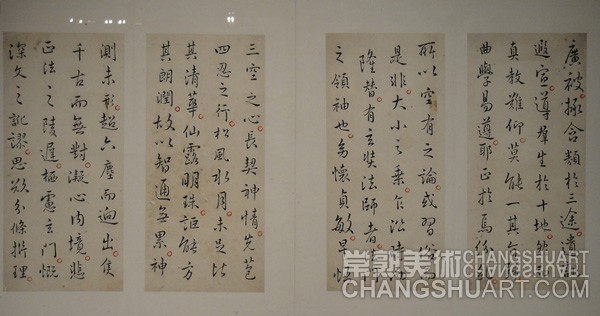 廣被拯含類於三途遺
遐宣導羣生於十地然
真教難仰莫能一其
曲學易遵耶正於焉紛
所以空有之論或習俗
是非大小之乘乍沿時
隆替有玄奘法師者
之領袖也幼懷貞敏早悟
三空之心長契神情先苞
四忍之行松風水月未足比
其清華仙露明珠詎能方
其朗潤故以智通無累神
測未形超六塵而迥出隻
千古而無對凝心內境悲
正法之陵遲栖慮玄門慨
深文之訛謬思欲分條析理
常熟美術
CHANGSHUART.COM
CHANGSHUART.COM